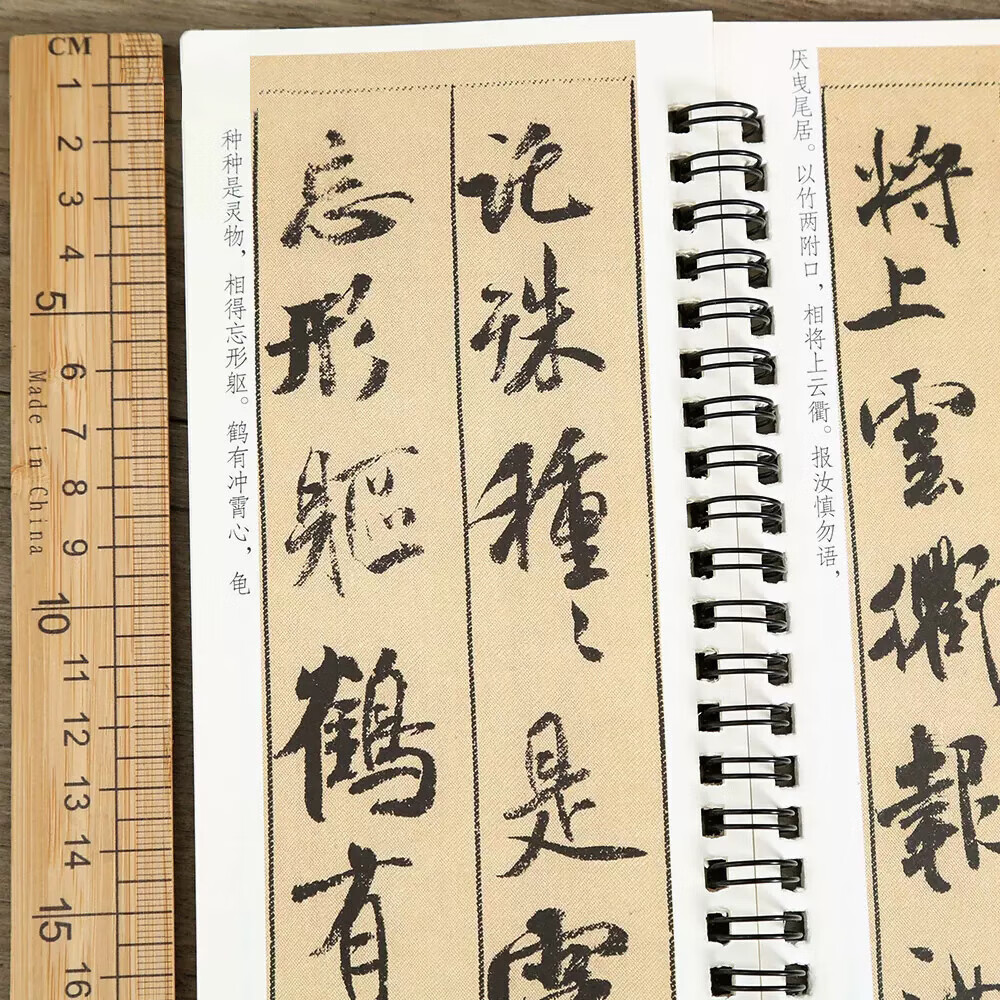 CM
1
2
3
4
5
6
7
8
9
10
11
12
13
14
15
16
Made in China
託殊種〻是
忘形軀鶴有
种种是灵物，相得忘形躯。鹤有冲霄心，龟
將上雲衢報
厌曳尾居。以竹两附口，相将上云衢。报汝慎勿语，